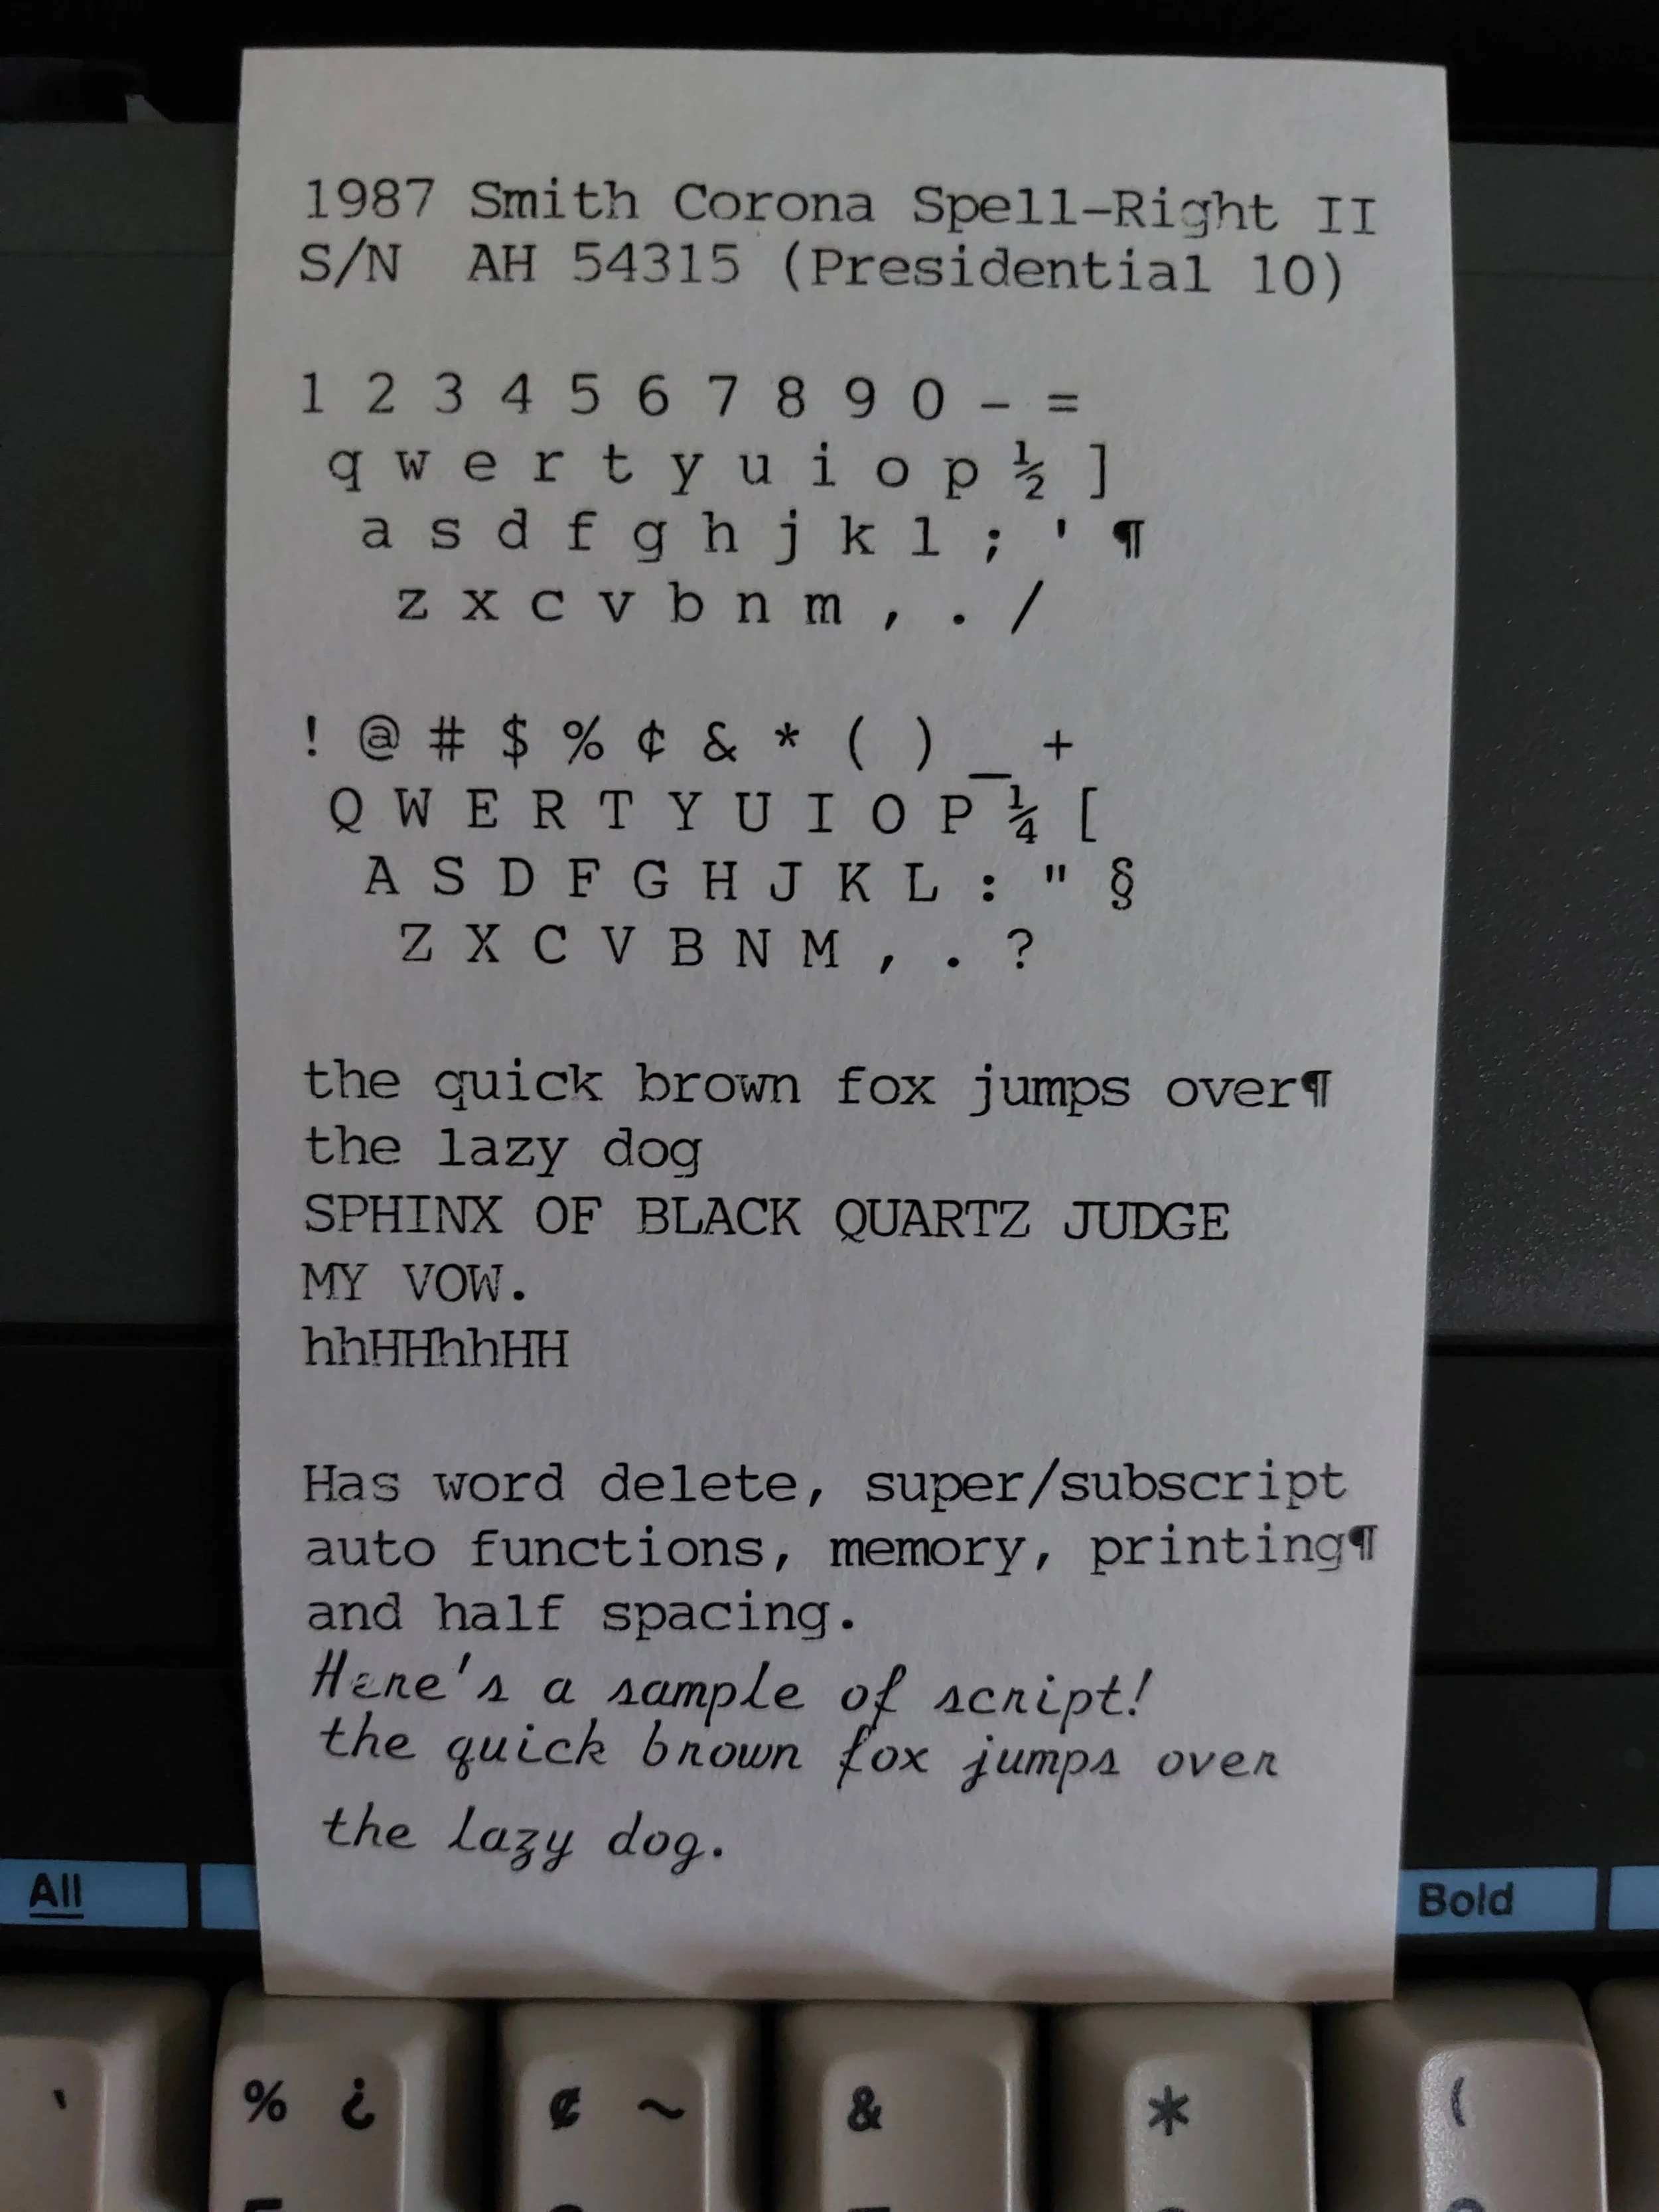 1987 Smith Corona Spell-Right II
S/N  AH 54315 (Presidential 10)
1 2 3 4 5 6 7 8 9 0 - =
q w e r t y u i o p ½ ]
a s d f g h j k l ; ' ¶
z x c v b n m , . /
! @ # $ % ¢ & * ( ) _ +
Q W E R T Y U I O P ¼ [
A S D F G H J K L : " §
Z X C V B N M , . ?
the quick brown fox jumps over¶
the lazy dog
SPHINX OF BLACK QUARTZ JUDGE
MY VOW.
hhHHhhHH
Has word delete, super/subscript
auto functions, memory, printing¶
and half spacing.
Here's a sample of script!
the quick brown fox jumps over
the lazy dog.
All
Bold
% ¿ ¢ ~ & * (